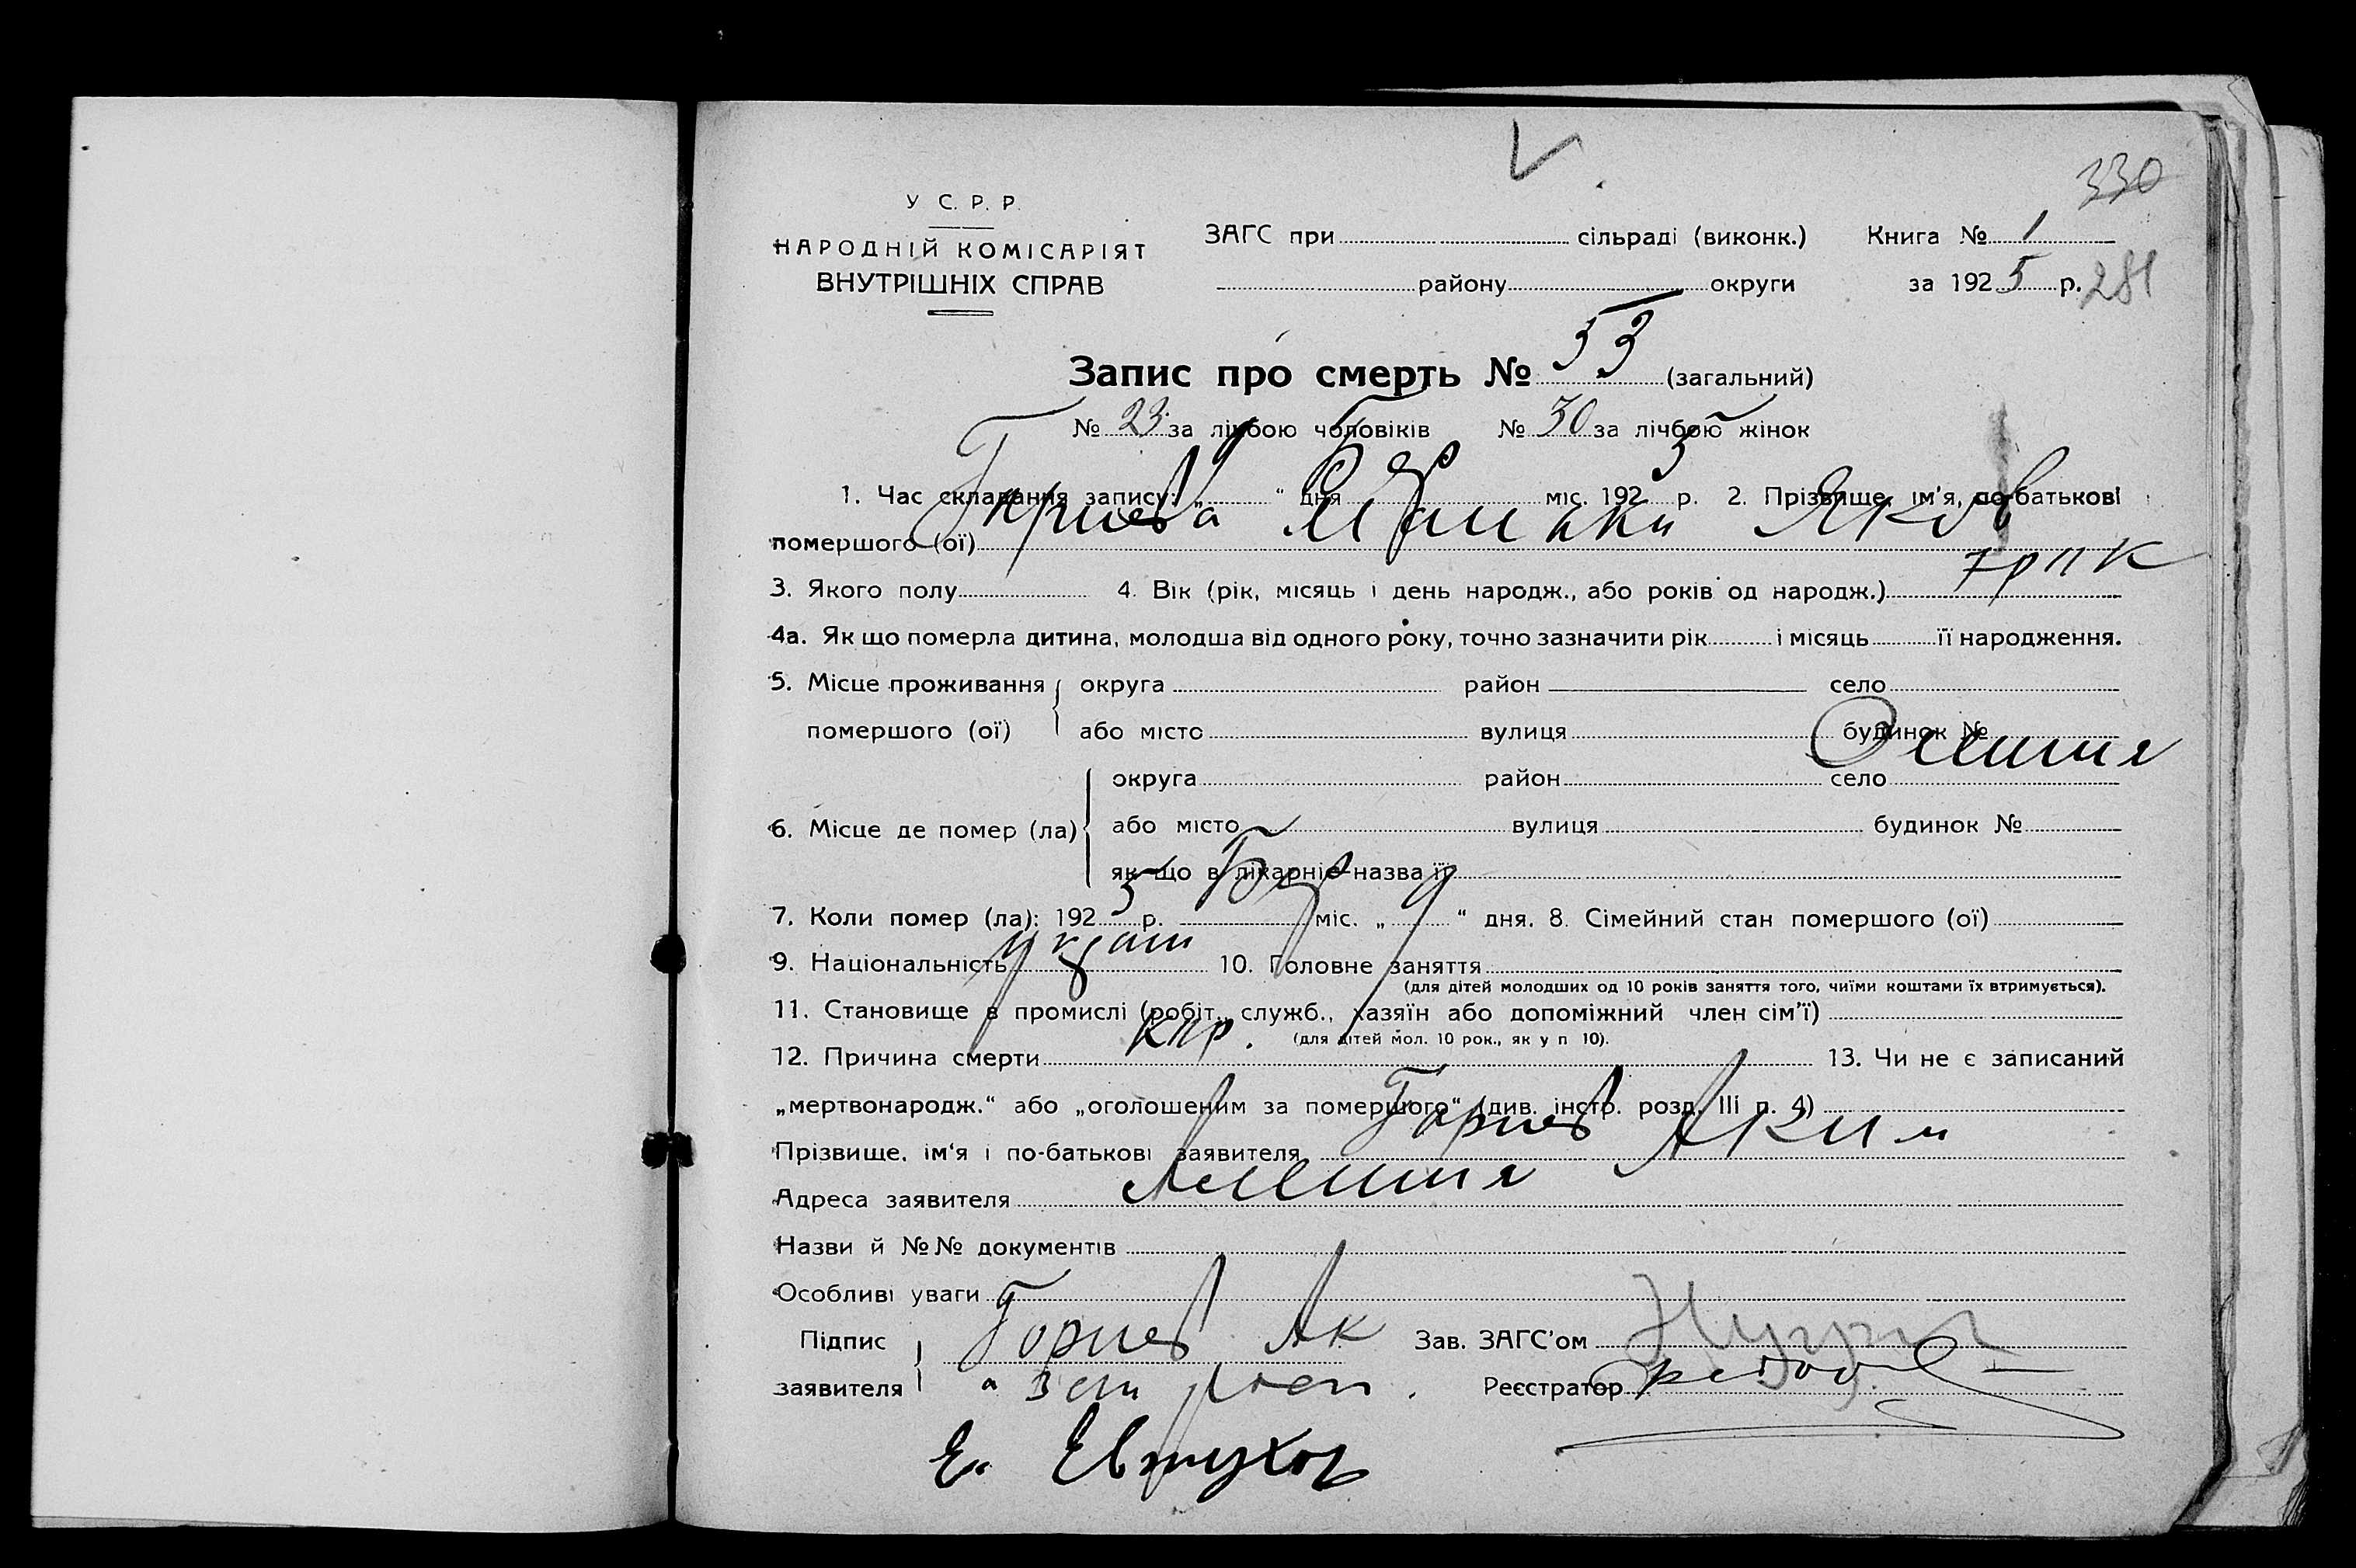 330
У С. Р. Р.
НАРОДНІЙ КОМІСАРІЯТ
ВНУТРІШНІХ СПРАВ
ЗАГС при сільраді (виконк.) Книга № 1
району округи за 1925 р. 281
Запис про смерть № 53 (загальний)
№ 23 за лічбою чоловіків № 30 за лічбою жінок
1. Час складання запису: „ 9 “ дня міс. 1925 р. 2. Прізвище, ім'я, по-батькові
помершого (ої) Яков
3. Якого полу 4. Вік (рік, місяць і день народж., або років од народж.)
4а. Як що померла дитина, молодша від одного року, точно зазначити рік і місяць її народження.
5. Місце проживання округа район село
помершого (ої) або місто вулиця будинок №
округа район село
6. Місце де помер (ла) або місто вулиця будинок №
як що в лікарні—назва її
7. Коли помер (ла): 1925 р. міс. „ 9 “ дня. 8. Сімейний стан помершого (ої)
9. Національність 10. Головне заняття
(для дітей молодших од 10 років заняття того, чиїми коштами їх втримується).
11. Становище в промислі (робіт., служб., хазяїн або допоміжний член сім'ї)
(для дітей мол. 10 рок., як у п 10).
12. Причина смерти кир. 13. Чи не є записаний
„мертвонародж.“ або „оголошеним за помершого“ (див. інстр. розд. III п. 4)
Прізвище, ім'я і по-батькові заявителя Горнев Аким
Адреса заявителя
Назви й №№ документів
Особливі уваги
Підпис Горнев Ак Зав. ЗАГС'ом
заявителя Реєстратор
Евтухов